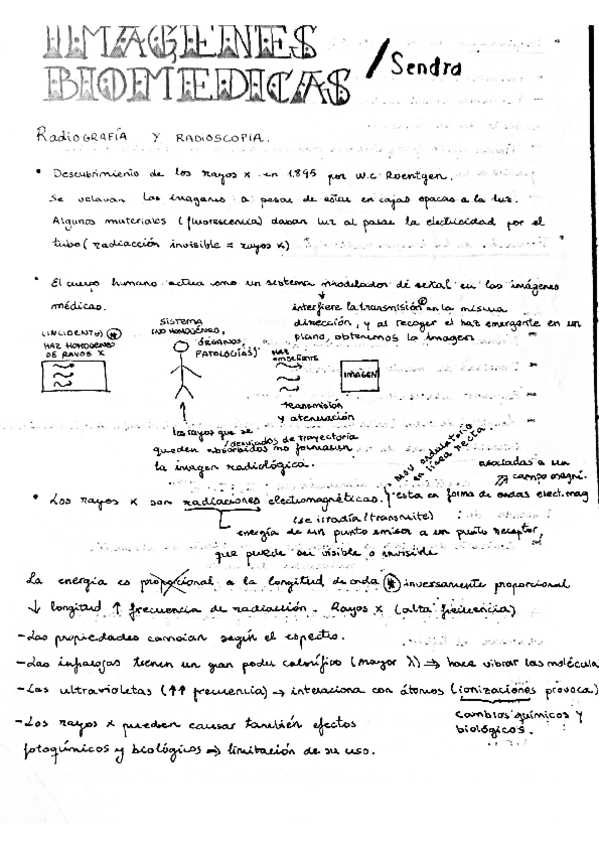 IMAGENES
BIOMEDICAS / Sendra
RADIOGRAFÍA Y RADIOSCOPIA.
• Descubrimiento de los rayos x en 1.895 por W.C. Roentgen.
Se velavan las imagenes a pesar de estar en cajas opacas a la luz.
Algunos materiales (fluorescencia) daban luz al pasar la electricidad por el
tubo (radiacción invisible = rayos x)
• El cuerpo humano actua como un sistema modelador de señal en las imágenes
médicas.
interfiere la transmisión en la misma
dirección, y al recoger el haz emergente en un
plano, obtenemos la imagen
(INCIDENTE) *
HAZ HOMOGENEO
DE RAYOS X
SISTEMA
(NO HOMOGÉNEO,
ÓRGANOS,
PATOLOGÍAS)
HAZ
EMERGENTE
IMAGEN
transmisión
y atenuación
los rayos que se
quedan absorbidos no forman
/desviados de trayectoria
la imagen radiológica.
* MOV ondulatorio
en línea recta
asociadas a un
campo magné.
• Los rayos x son radiaciones electromagnéticas. Esta en forma de ondas elect.mag
(se irradia/transmite)
energía de un punto emisor a un punto receptor,
que puede ser visible o invisible
La energía es proporcional a la longitud de onda * inversamente proporcional
↓ longitud ↑ frecuencia de radiacción. Rayos x (alta frecuencia)
-Las propiedades cambian según el espectro.
-Los infrarojos tienen un gran poder calorífico (mayor λ) ⇒ hace vibrar las molécula
-Los ultravioletas (↑↑ frecuencia) → interaciona con átomos (ionizaciones provoca)
cambios químicos y
biológicos.
-Los rayos x pueden causar también efectos
fotoquímicos y biológicos ⇒ limitación de su uso.